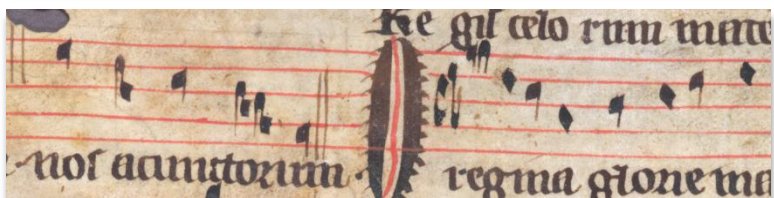 Re gis celo rum mate
nos acunctorum O regina glorie ma